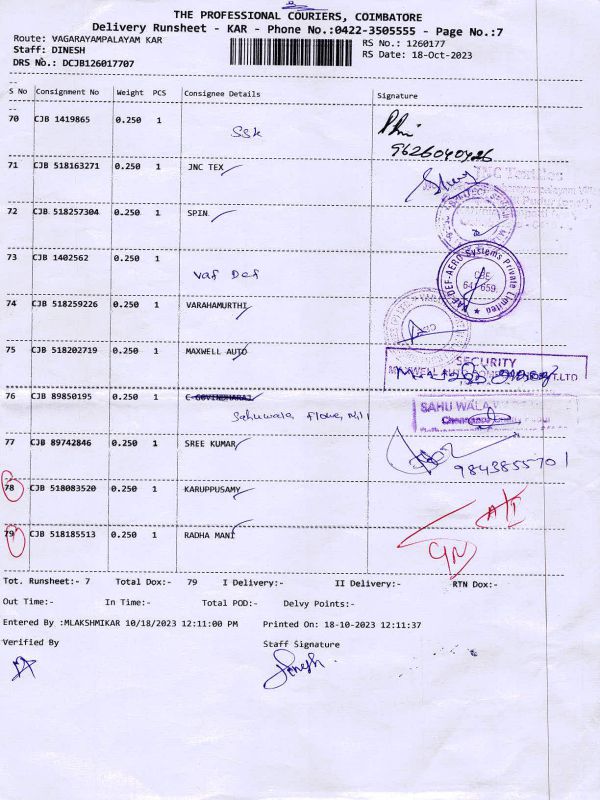 THE PROFESSIONAL COURIERS, COIMBATORE
Delivery Runsheet - KAR - Phone No.:0422-3505555 - Page No.:7
Route: VAGARAYAMPALAYAM KAR
RS No.: 1260177
Staff: DINESH
RS Date: 18-Oct-2023
DRS No.: DCJB126017707
S No Consignment No Weight PCS Consignee Details Signature
70 CJB 1419865 0.250 1 SSK
9626040426
71 CJB 518163271 0.250 1 JNC TEX
JNC Textiles
72 CJB 518257304 0.250 1 SPIN
73 CJB 1402562 0.250 1 Vaf Def
VAF-DEF-AERO Systems Private Limited
CBE 641 659.
74 CJB 518259226 0.250 1 VARAHAMURTHI
75 CJB 518202719 0.250 1 MAXWELL AUTO
SECURITY
MAXWELL AUTO PVT.LTD
76 CJB 89850195 0.250 1 C GOVINDHARAJ
Sahuwala Flour Mill
SAHU WALA
77 CJB 89742846 0.250 1 SREE KUMAR
9843855701
78 CJB 518083520 0.250 1 KARUPPUSAMY
A/I
79 CJB 518185513 0.250 1 RADHA MANI
Tot. Runsheet:- 7 Total Dox:- 79 I Delivery:- II Delivery:- RTN Dox:-
Out Time:- In Time:- Total POD:- Delvy Points:-
Entered By :MLAKSHMIKAR 10/18/2023 12:11:00 PM Printed On: 18-10-2023 12:11:37
Verified By Staff Signature
Dinesh